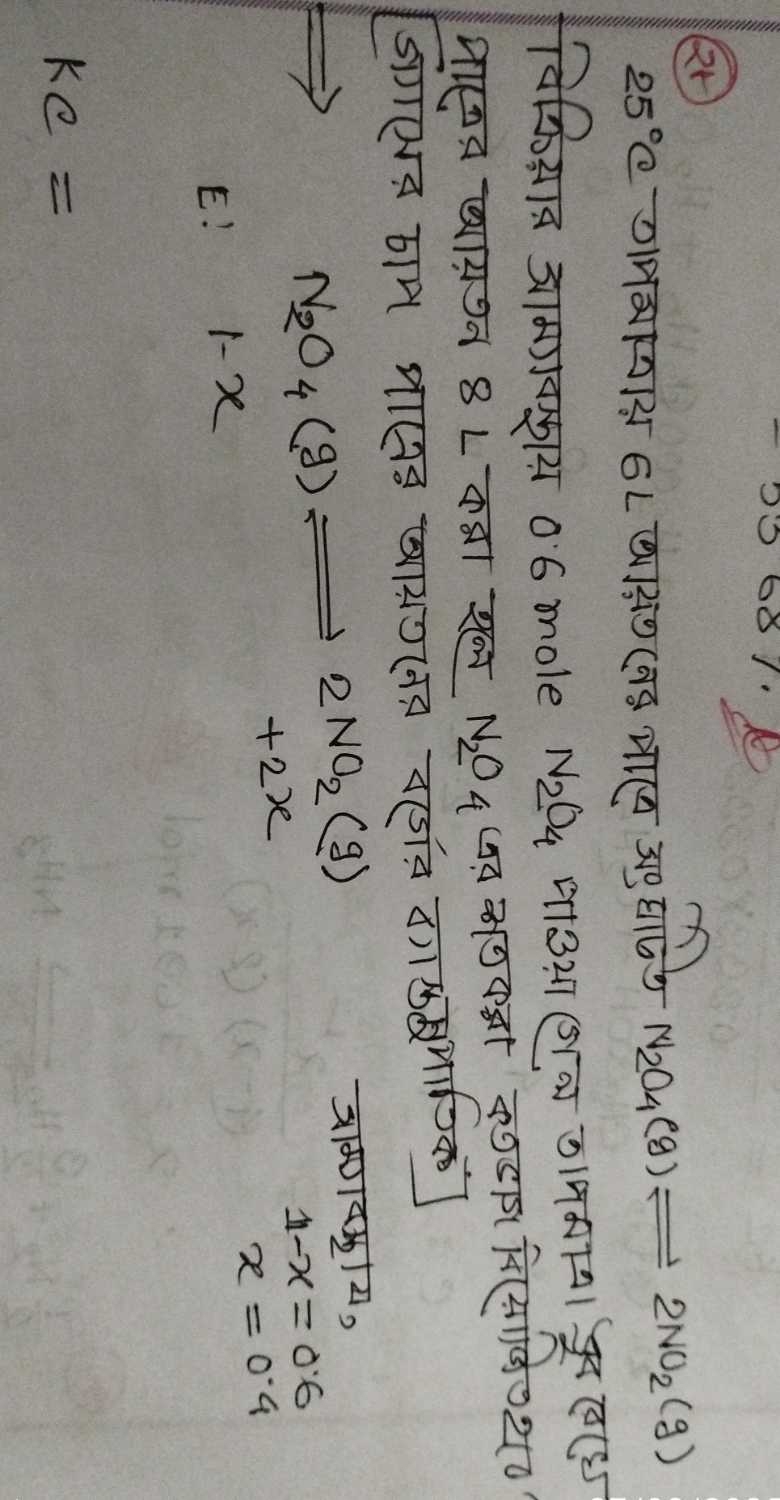 = 55 68 %.
২৮
25°C তাপমাত্রায় 6L আয়তনের পাত্রে সংঘটিত N₂O₄(g) ⇌ 2NO₂(g)
বিক্রিয়ার সাম্যাবস্থায় 0.6 mole N₂O₄ পাওয়া গেল তাপমাত্রা স্থির রেখে
পাত্রের আয়তন 8 L করা হলে N₂O₄ এর শতকরা কতভাগ বিয়োজিত হবে
[গ্যাসের চাপ পাত্রের আয়তনের বর্গের ব্যাস্তানুপাতিক]
⇒ N₂O₄(g) ⇌ 2NO₂(g) সাম্যাবস্থায়,
E: 1-x +2x 1-x = 0.6
x = 0.4
Kc =